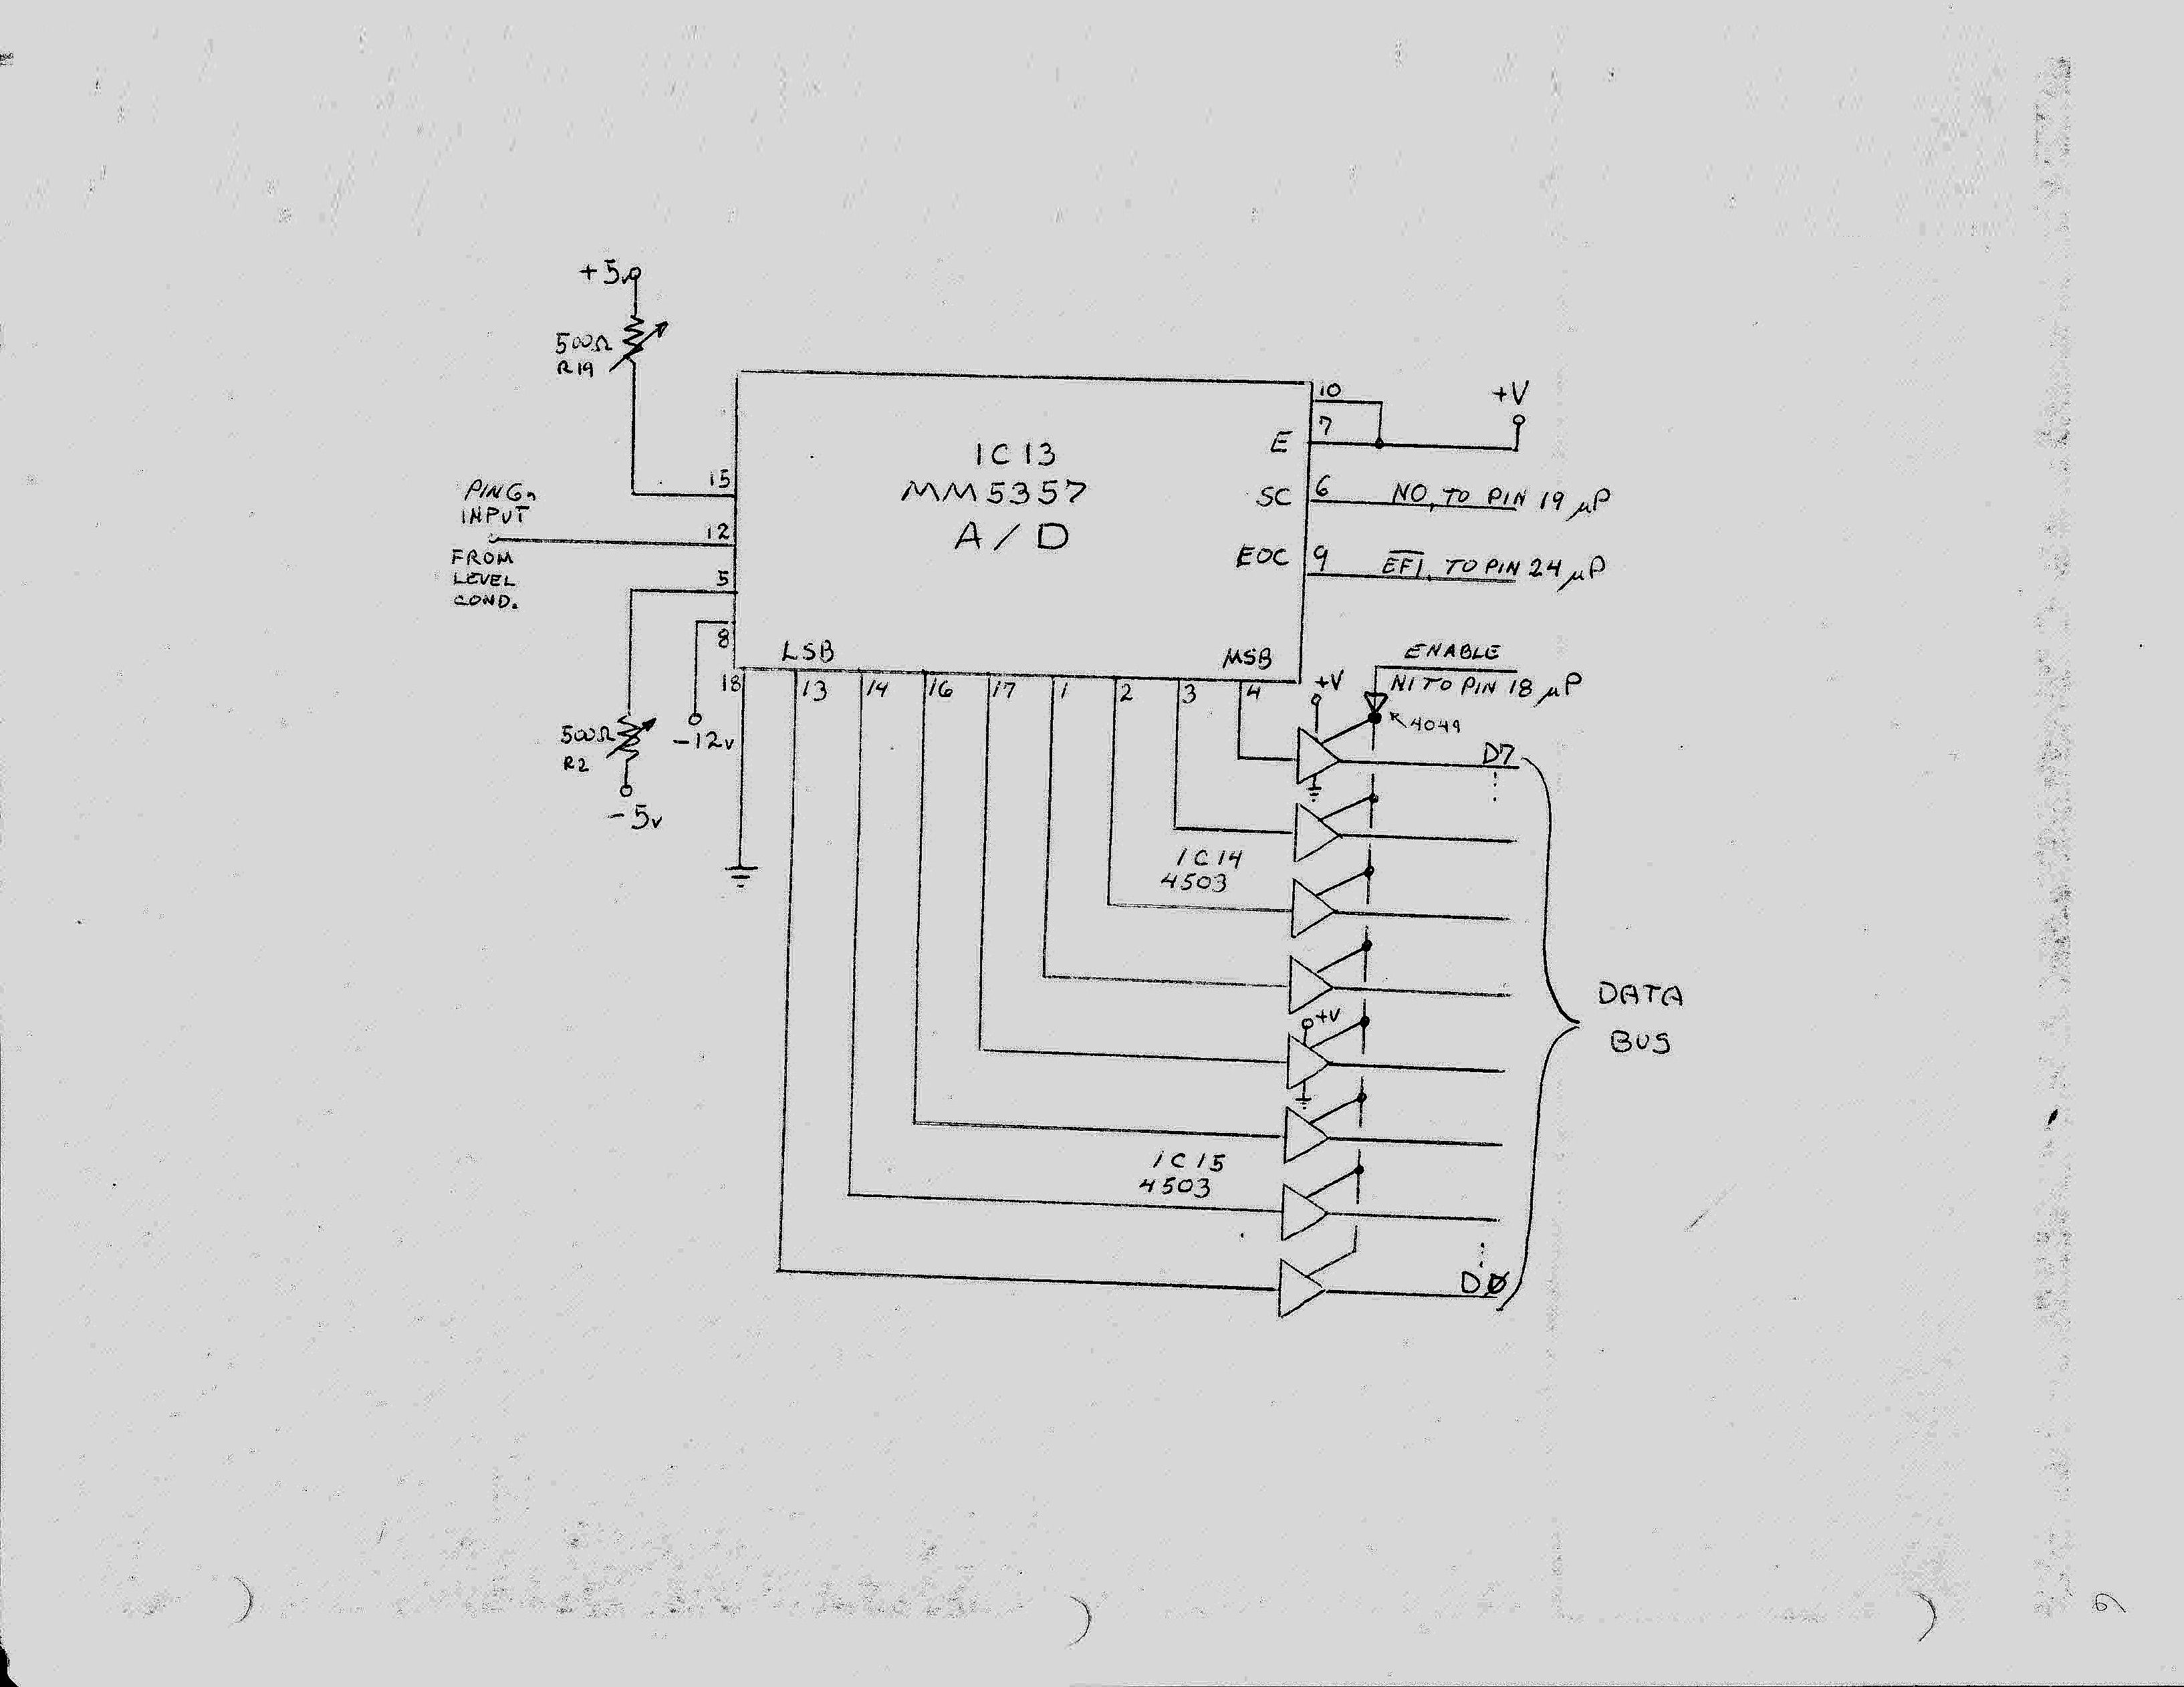 +5v
500Ω
R19
10
+V
7
E
IC13
MM5357
A/D
15
PING
INPUT
12
FROM
LEVEL
COND.
5
8
SC
6
NO, TO PIN 19 μP
EOC
9
EF1, TO PIN 24 μP
LSB
MSB
ENABLE
N1 TO PIN 18 μP
18
13
14
16
17
1
2
3
4
+V
4049
500Ω
R2
-12v
-5v
D7
IC14
4503
DATA
BUS
+V
IC15
4503
DØ
6